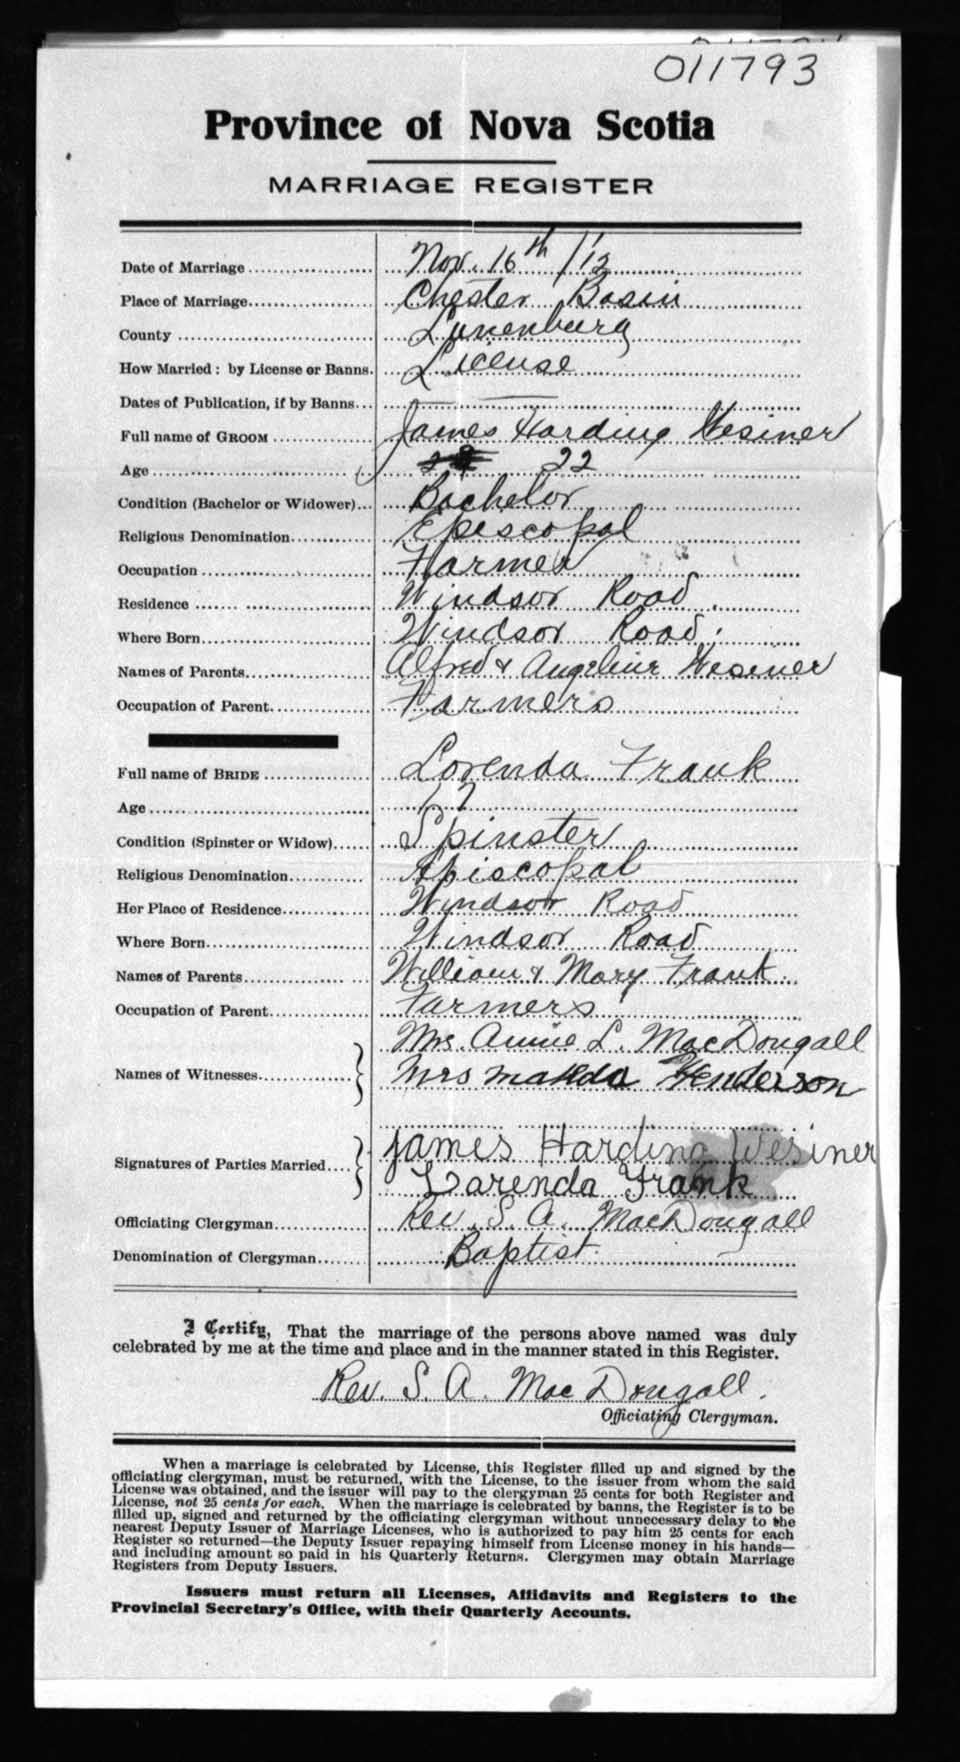 011793
Province of Nova Scotia
MARRIAGE REGISTER
Date of Marriage Nov. 16th /12
Place of Marriage Chester Basin
County Lunenburg
How Married: by License or Banns. License
Dates of Publication, if by Banns
Full name of GROOM James Harding Wesiner
Age 22
Condition (Bachelor or Widower) Bachelor
Religious Denomination Episcopal
Occupation Farmer
Residence Windsor Road
Where Born Windsor Road
Names of Parents Alfred & Angeline Wesiner
Occupation of Parent Farmers
Full name of BRIDE Lorenda Frank
Age 17
Condition (Spinster or Widow) Spinster
Religious Denomination Episcopal
Her Place of Residence Windsor Road
Where Born Windsor Road
Names of Parents William & Mary Frank
Occupation of Parent Farmers
Mrs. Annie L. MacDougall
Names of Witnesses Mrs Matilda Henderson
James Harding Wesiner
Signatures of Parties Married
Larenda Frank
Officiating Clergyman Rev. S. A. MacDougall
Denomination of Clergyman Baptist
I Certify, That the marriage of the persons above named was duly
celebrated by me at the time and place and in the manner stated in this Register.
Rev. S. A. MacDougall.
Officiating Clergyman.
When a marriage is celebrated by License, this Register filled up and signed by the
officiating clergyman, must be returned, with the License, to the issuer from whom the said
License was obtained, and the issuer will pay to the clergyman 25 cents for both Register and
License, not 25 cents for each. When the marriage is celebrated by banns, the Register is to be
filled up, signed and returned by the officiating clergyman without unnecessary delay to the
nearest Deputy Issuer of Marriage Licenses, who is authorized to pay him 25 cents for each
Register so returned—the Deputy Issuer repaying himself from License money in his hands—
and including amount so paid in his Quarterly Returns. Clergymen may obtain Marriage
Registers from Deputy Issuers.
Issuers must return all Licenses, Affidavits and Registers to the
Provincial Secretary's Office, with their Quarterly Accounts.